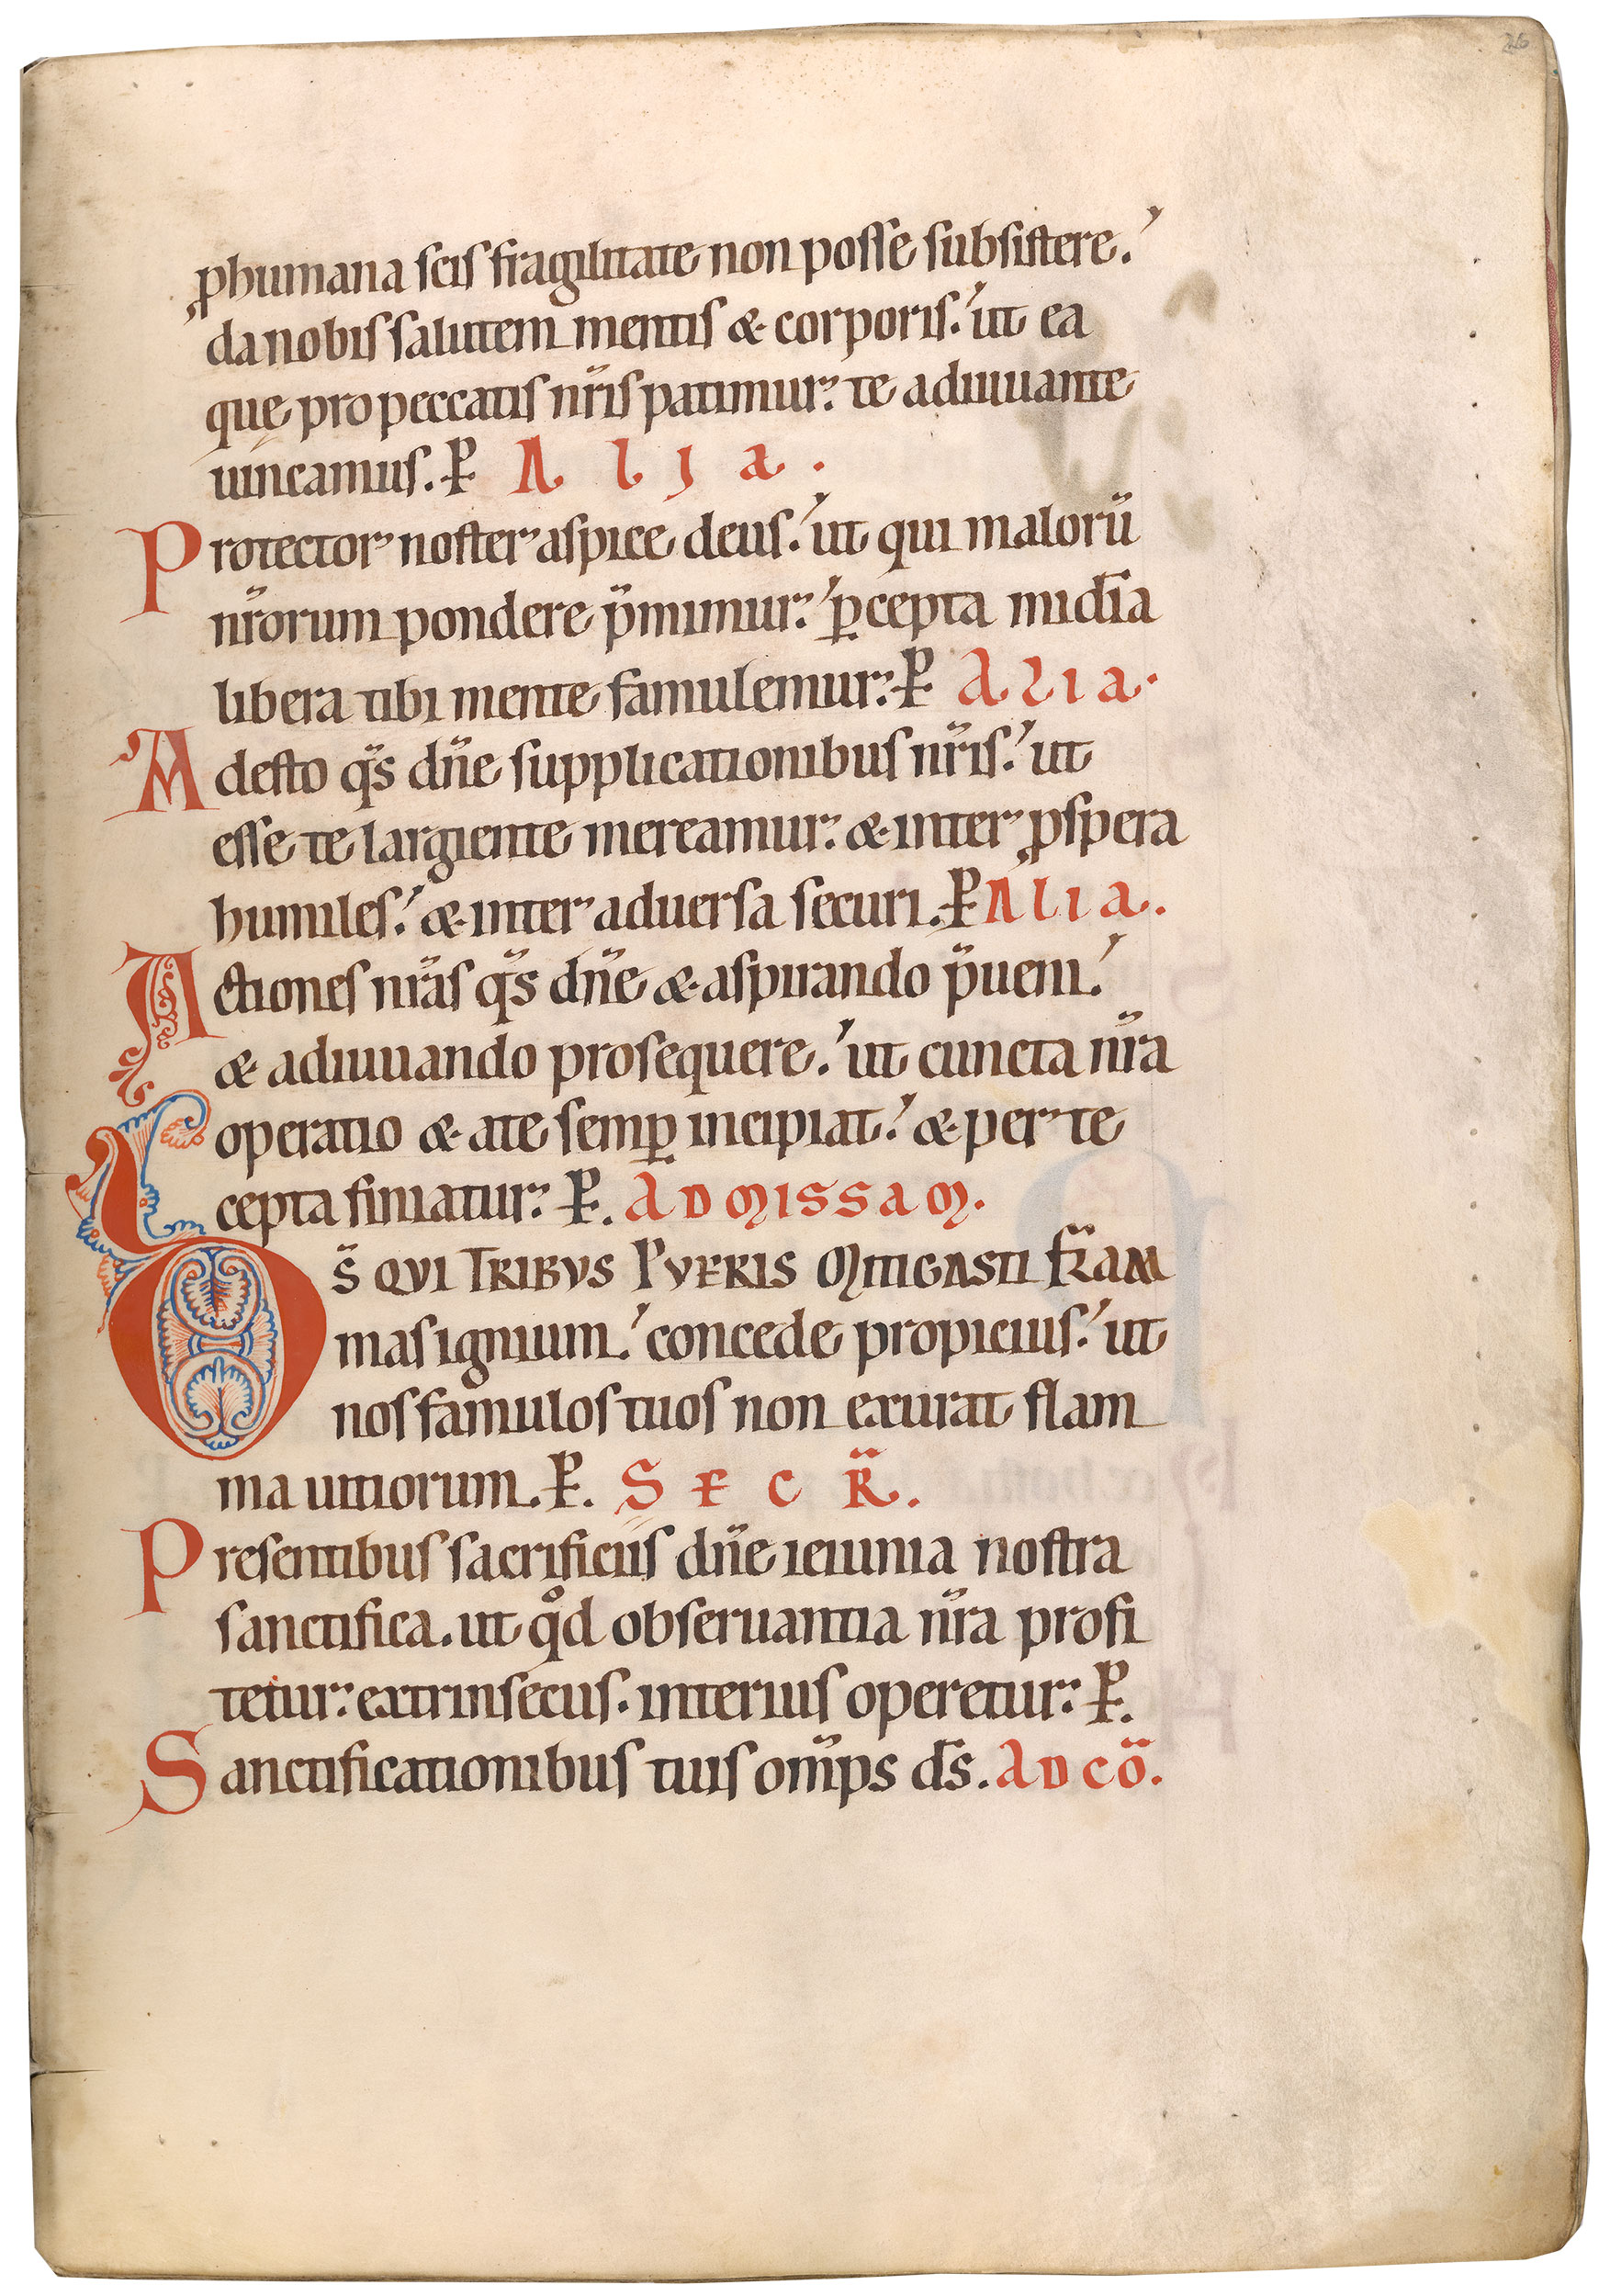 26
ꝓhumana scis fragilitate non posse subsistere.
da nobis salutem mentis & corporis. ut ea
quę pro peccatis nr̄is patimur. te adiuuante
uincamus. P̱ Alia.
Protector noster aspice deus. ut qui malorū
nr̄orum pondere p̄mimur. ꝑcepta mid̄ia
libera tibi mente famulemur. P̱ Alia.
Adesto qs̄ dn̄e supplicationibus nr̄is. ut
esse te largiente mereamur. & inter ꝓspera
humiles. & inter aduersa securi. P̱ Alia.
Actiones nr̄as qs̄ dn̄e & aspirando p̄ueni.
& adiuuando prosequere. ut cuncta nr̄a
operatio & a te semꝑ incipiat. & per te
cepta finiatur. P̱. AD MISSAM.
DS̄ QUI TRIBVS PVERIS MITIGASTI FR̄AM
mas ignium. concede propicius. ut
nos famulos tuos non exurat flam
ma uitiorum. P̱. SECR̄.
Presentibus sacrificiis dn̄e ieiunia nostra
sanctifica. ut qͦd obseruantia nr̄a profi
tetur. extrinsecus. interius operetur. P̱.
Sanctificationibus tuis omīps ds̄. AD CŌ.